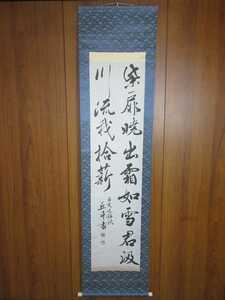 柴扉暁出霜如雪君汲
川流我拾薪